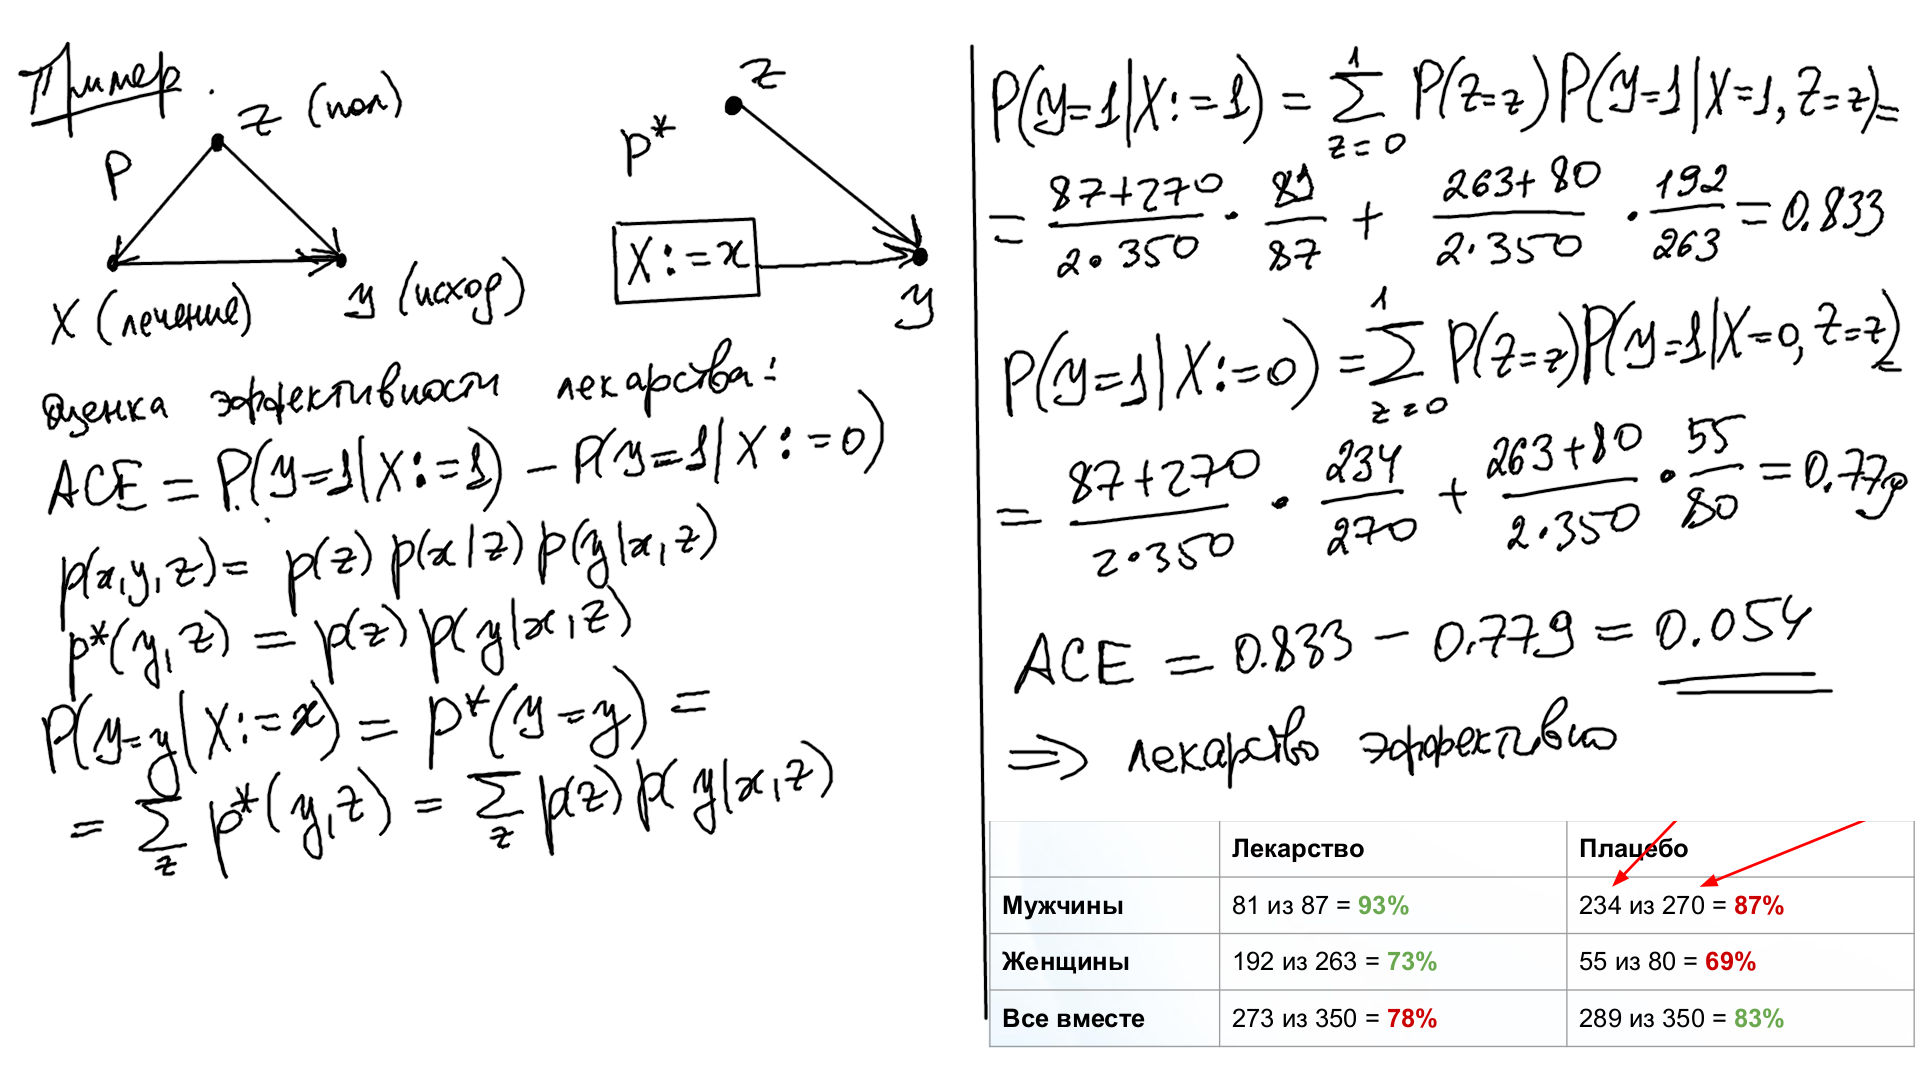 Пример.
Z (пол)
P
X (лечение)
y (исход)
Z
P*
X := x
y
Оценка эффективности лекарства:
ACE = P(y=1|X:=1) − P(y=1|X:=0)
p(x,y,z) = p(z) p(x|z) p(y|x,z)
p*(y,z) = p(z) p(y|x,z)
P(y=y|X:=x) = P*(y=y) =
= ∑_z p*(y,z) = ∑_z p(z) p(y|x,z)
P(y=1|X:=1) = ∑_{z=0}^{1} P(Z=z) P(y=1|X=1, Z=z) =
= (87+270)/(2·350) · 81/87 + (263+80)/(2·350) · 192/263 = 0.833
P(y=1|X:=0) = ∑_{z=0}^{1} P(Z=z) P(y=1|X=0, Z=z) =
= (87+270)/(2·350) · 234/270 + (263+80)/(2·350) · 55/80 = 0.779
ACE = 0.833 − 0.779 = 0.054
⇒ лекарство эффективно
Лекарство Плацебо
Мужчины 81 из 87 = 93% 234 из 270 = 87%
Женщины 192 из 263 = 73% 55 из 80 = 69%
Все вместе 273 из 350 = 78% 289 из 350 = 83%